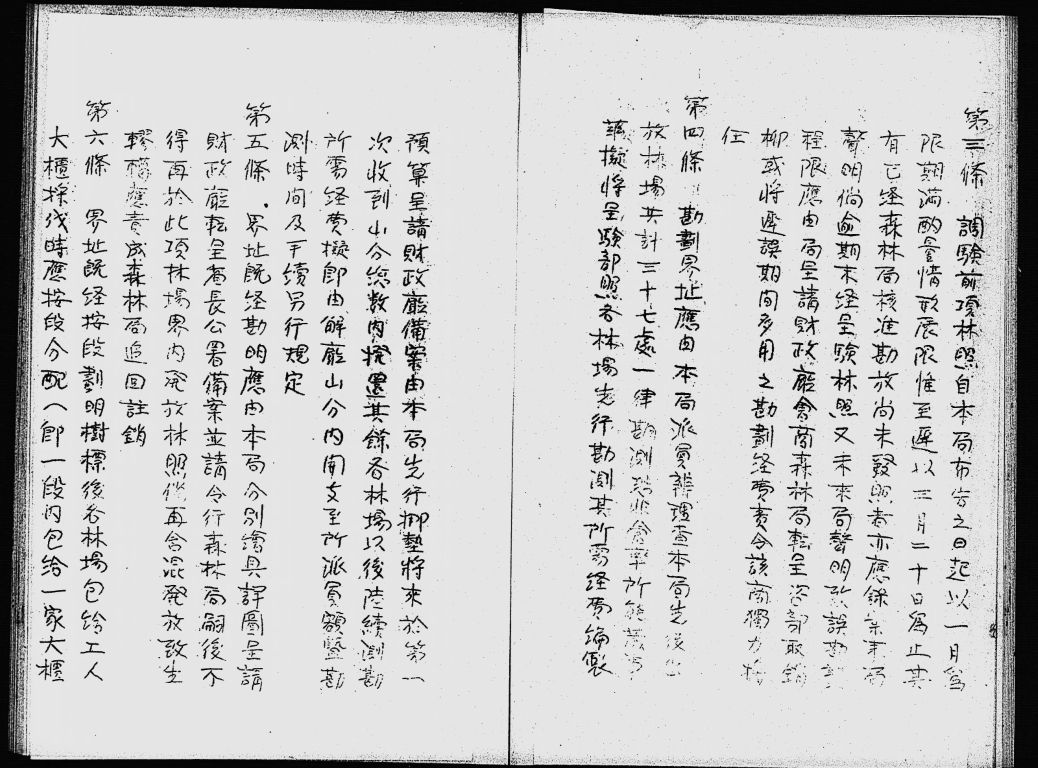 第三條　調驗前項林照自本局布告之日起以一月爲
限期滿酌量情形展限惟至遲以三月二十日爲止其
有已經森林局核准勘放尚未發照者亦應錄案來局
聲明倘逾期未經呈驗林照又未來局聲明致誤勘劃
程限應由局呈請財政廳會商森林局転呈咨部取銷
柳或將遲誤期間多用之勘劃経費責令該商獨力擔
任
第四條　勘劃界址應由本局派員辦理查本局先後出
放林場共計三十七處一律勘測恐非倉卒所能
擬將呈驗部照各林場先行勘測其所需経費編製
預算呈請財政廳備案由本局先行挪墊將來於第一
次收到山分総數內撥還其餘各林場以後陸續測勘
所需経費擬即由解廳山分內開支至所派員額暨勘
測時间及手續另行規定
第五條　界址既経勘明應由本局分别繪具詳圖呈請
財政廳転呈省長公署備案並請令行森林局嗣後不
得再於此項林場界內発放林照倘再含混発放致生
轇轕應責成森林局追回註銷
第六條　界址既経按段劃明樹標後各林場包給工人
大櫃採伐時應按段分配（即一段內包给一家大櫃